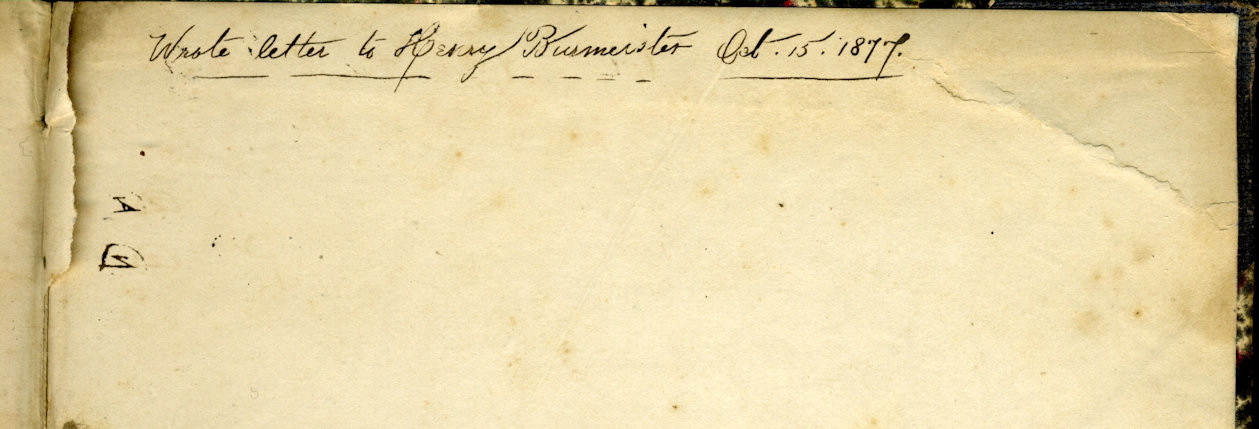 Wrote letter to Henry Burmeister Oct. 15. 1877.